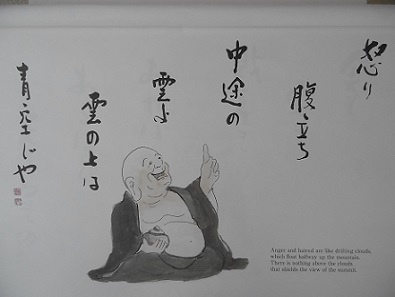 怒り
腹立ち
中途の
雲よ
雲の上は
青空じや
Anger and hatred are like drifting clouds,
which float halfway up the mountain.
There is nothing above the clouds
that shields the view of the summit.